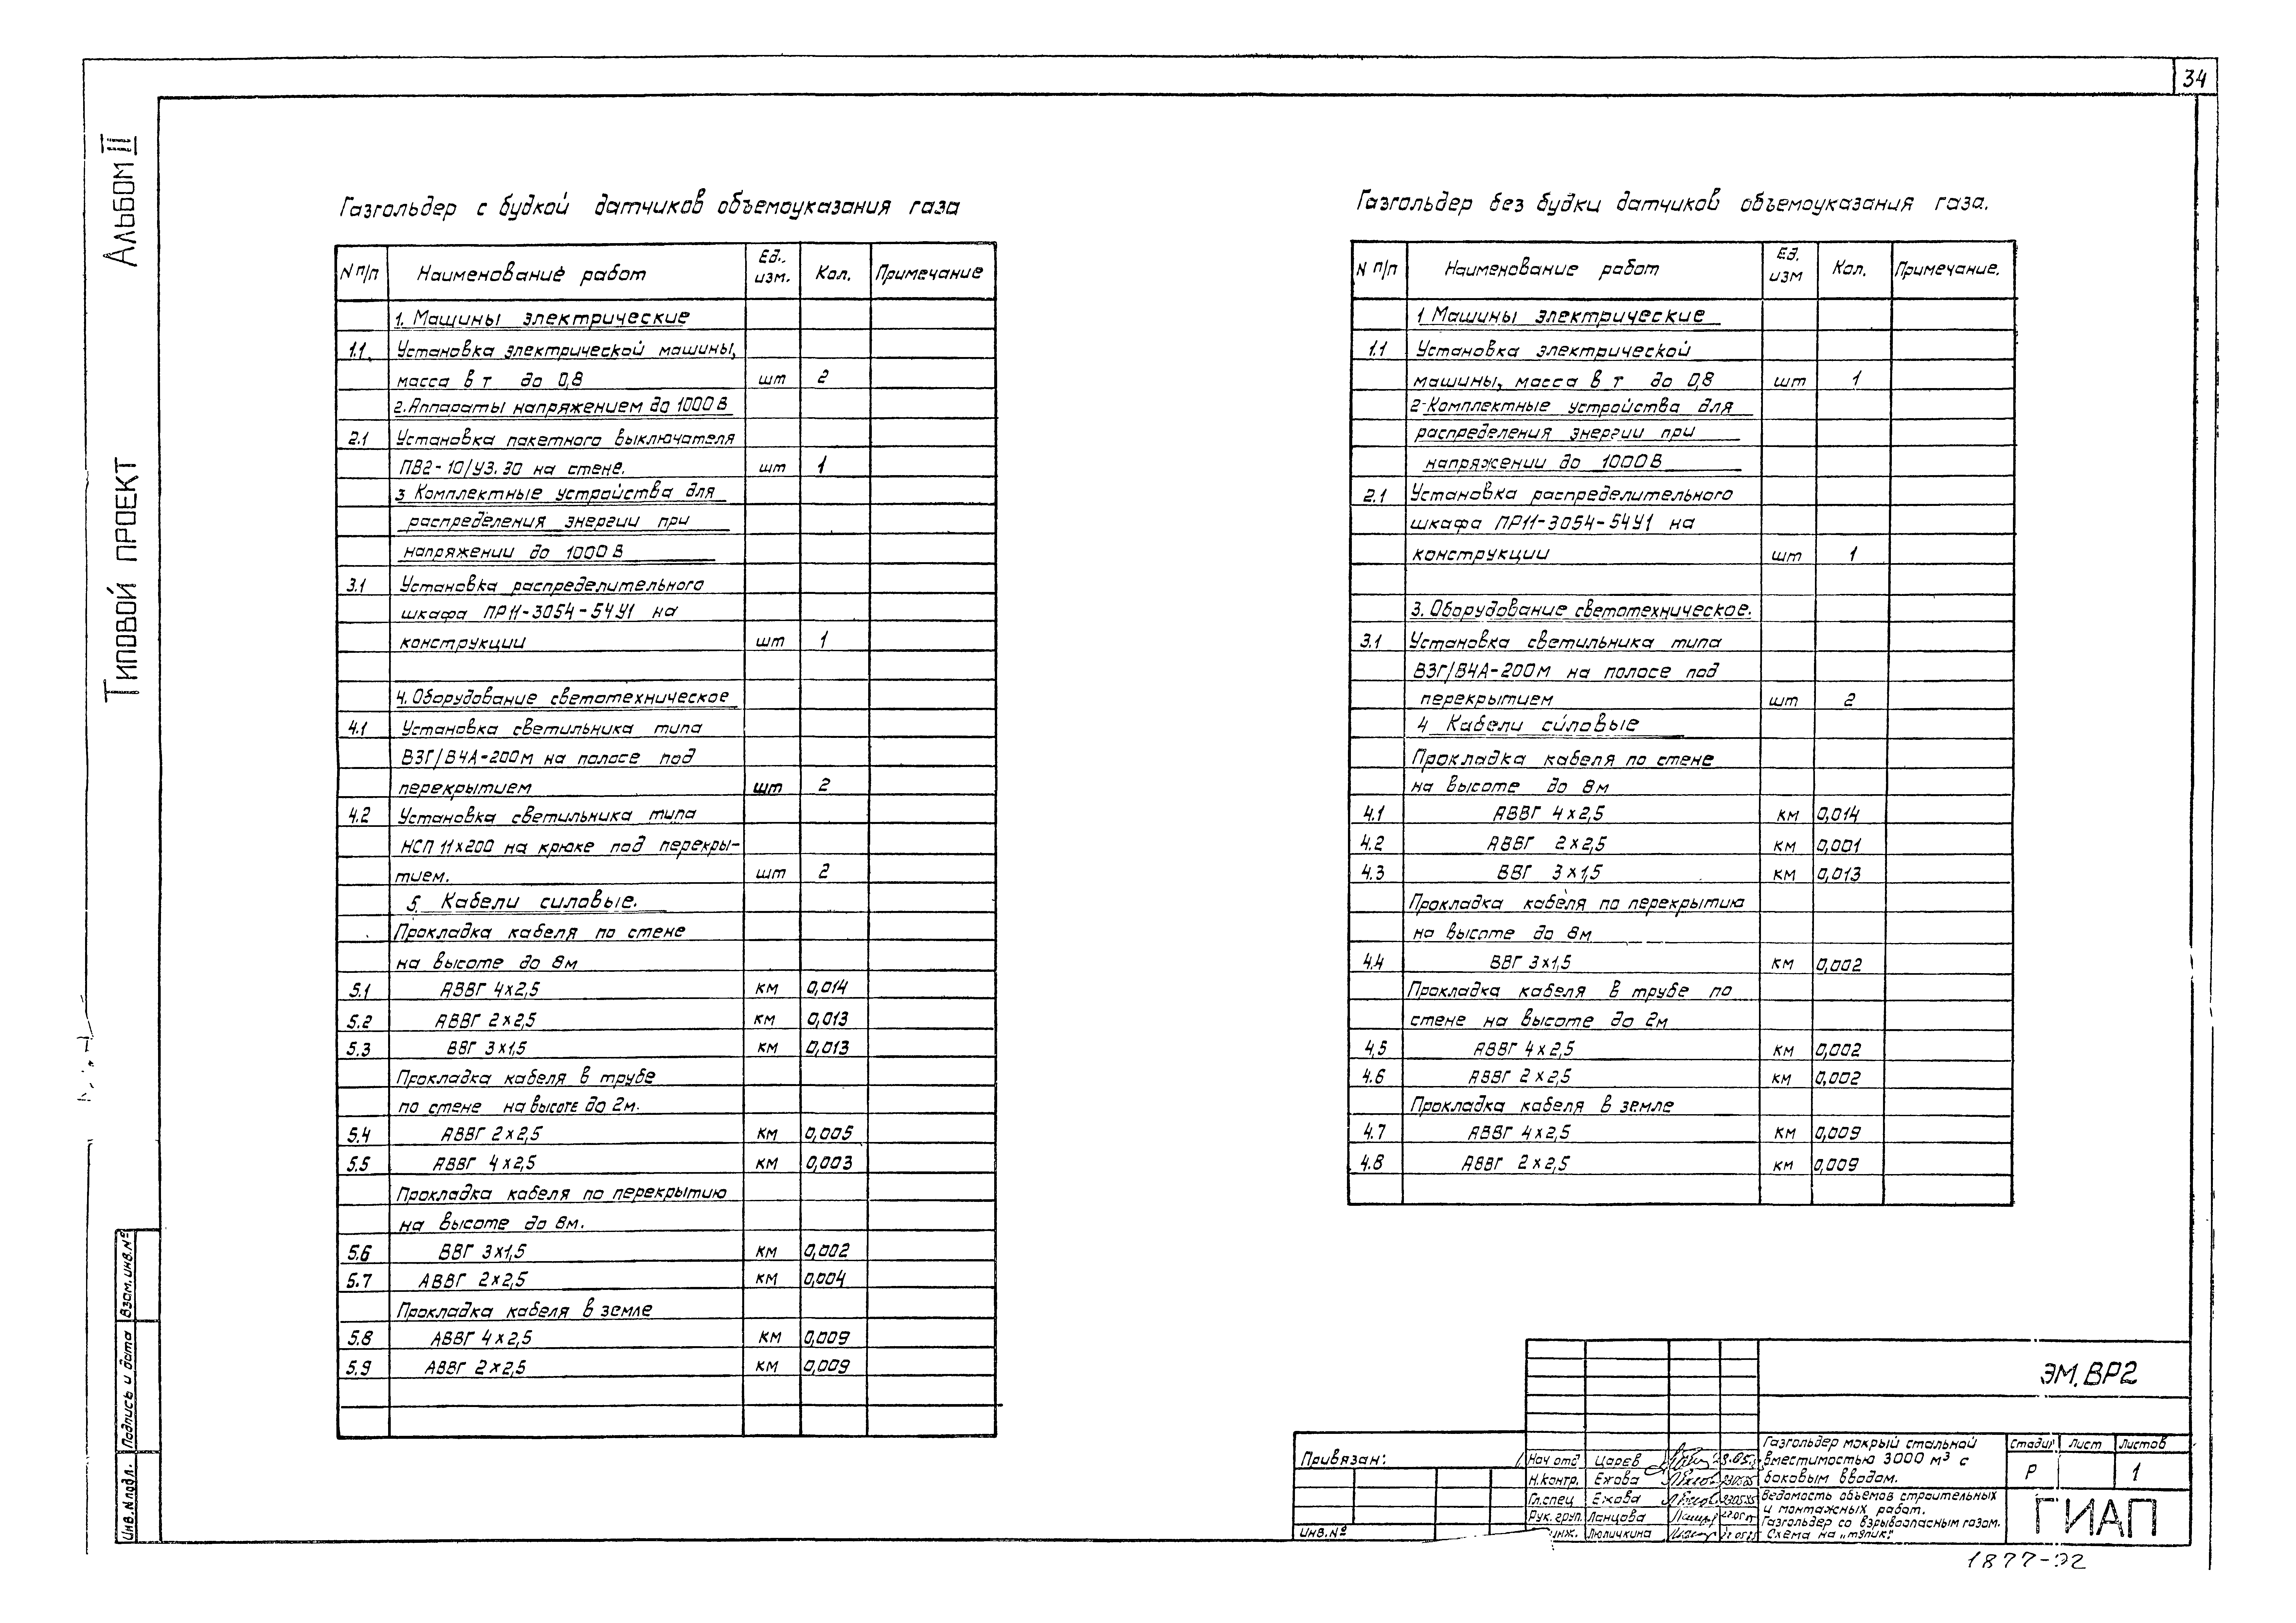 34
Альбом II
Типовой проект
Газгольдер с будкой датчиков объемоуказания газа
N п/п Наименование работ Ед. изм. Кол. Примечание
1. Машины электрические
1.1. Установка электрической машины,
масса в т до 0,8 шт 2
2. Аппараты напряжением до 1000 В
2.1 Установка пакетного выключателя
ПВ2-10/У3.30 на стене. шт 1
3 Комплектные устройства для
распределения энергии при
напряжении до 1000 В
3.1 Установка распределительного
шкафа ПР11-3054-54У1 на
конструкции шт 1
4. Оборудование светотехническое
4.1 Установка светильника типа
ВЗГ/В4А-200м на полосе под
перекрытием шт 2
4.2 Установка светильника типа
НСП 11х200 на крюке под перекры-
тием. шт 2
5. Кабели силовые.
Прокладка кабеля по стене
на высоте до 8м
5.1 АВВГ 4х2,5 км 0,014
5.2 АВВГ 2х2,5 км 0,013
5.3 ВВГ 3х1,5 км 0,013
Прокладка кабеля в трубе
по стене на высоте до 2м.
5.4 АВВГ 2х2,5 км 0,005
5.5 АВВГ 4х2,5 км 0,003
Прокладка кабеля по перекрытию
на высоте до 8м.
5.6 ВВГ 3х1,5 км 0,002
5.7 АВВГ 2х2,5 км 0,004
Прокладка кабеля в земле
5.8 АВВГ 4х2,5 км 0,009
5.9 АВВГ 2х2,5 км 0,009
Газгольдер без будки датчиков объемоуказания газа.
N п/п Наименование работ Ед. изм Кол. Примечание.
1 Машины электрические
1.1 Установка электрической
машины, масса в т до 0,8 шт 1
2-Комплектные устройства для
распределения энергии при
напряжении до 1000 В
2.1 Установка распределительного
шкафа ПР11-3054-54У1 на
конструкции шт 1
3. Оборудование светотехническое.
3.1 Установка светильника типа
ВЗГ/В4А-200м на полосе под
перекрытием шт 2
4 Кабели силовые
Прокладка кабеля по стене
на высоте до 8м
4.1 АВВГ 4х2,5 км 0,014
4.2 АВВГ 2х2,5 км 0,001
4.3 ВВГ 3х1,5 км 0,013
Прокладка кабеля по перекрытию
на высоте до 8м
4.4 ВВГ 3х1,5 км 0,002
Прокладка кабеля в трубе по
стене на высоте до 2м
4,5 АВВГ 4х2,5 км 0,002
4.6 АВВГ 2х2,5 км 0,002
Прокладка кабеля в земле
4.7 АВВГ 4х2,5 км 0,009
4.8 АВВГ 2х2,5 км 0,009
Взам. инв. №
Подпись и дата
Инв. N подл.
Привязан:
Инв. №
ЭМ. ВР2
Нач отд Царев
Н.контр. Ежова
Гл.спец Ежова
Рук. груп. Ланцова
инж. Люличкина
Газгольдер мокрый стальной
вместимостью 3000 м³ с
боковым вводом.
Ведомость объемов строительных
и монтажных работ.
Газгольдер со взрывоопасным газом.
Схема на „тупик".
Стадия Лист Листов
Р 1
ГИАП
1877-02